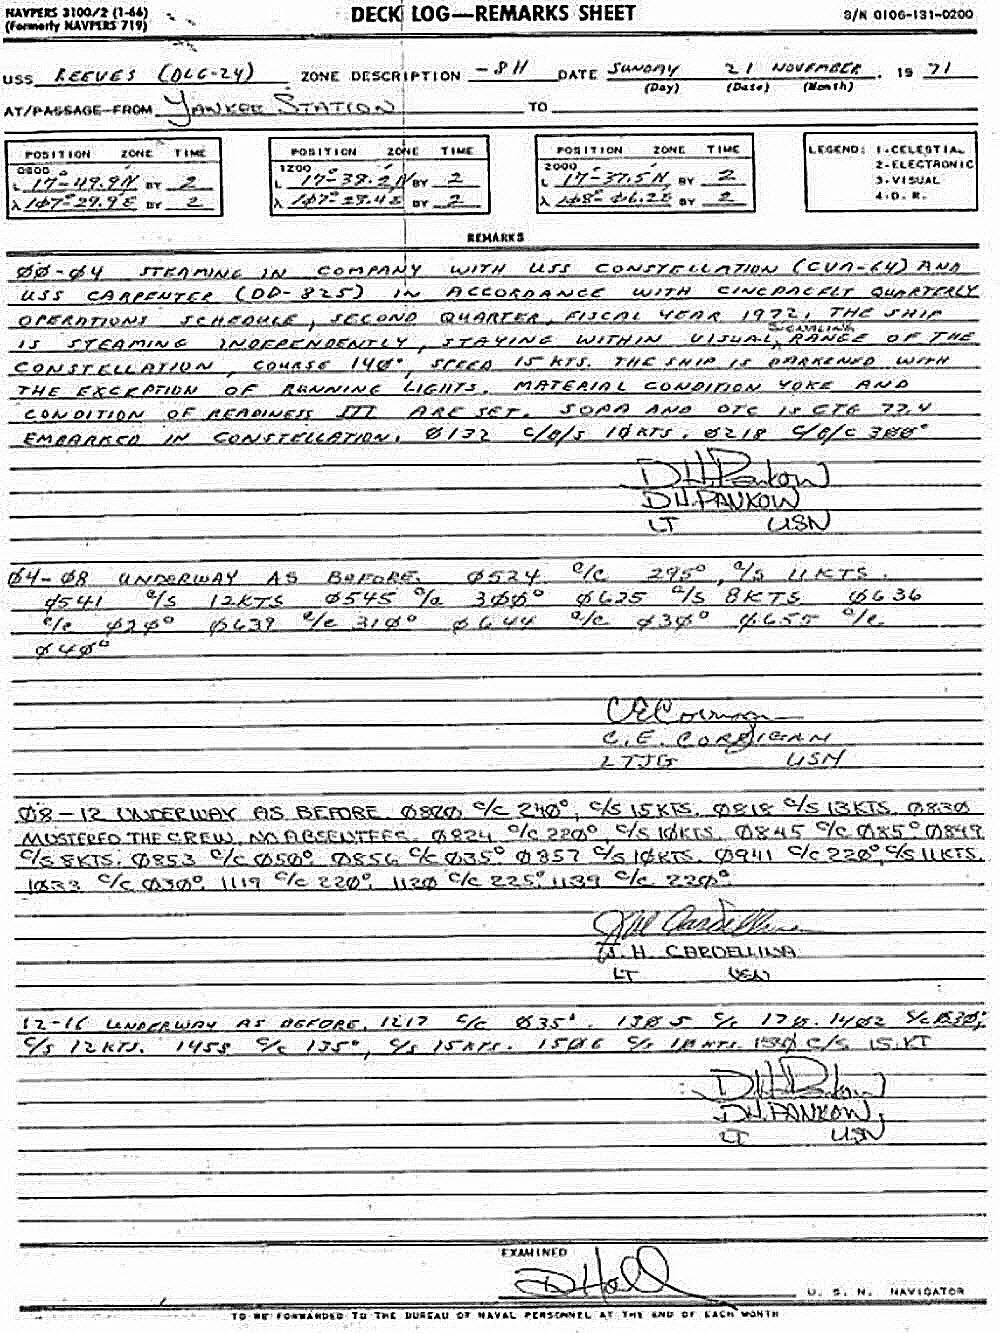 NAVPERS 3100/2 (1-66)
(Formerly NAVPERS 719)
DECK LOG—REMARKS SHEET
S/N 0106-131-0200
USS REEVES (DLG-24) ZONE DESCRIPTION -8H DATE SUNDAY 21 NOVEMBER, 1971
(Day) (Date) (Month)
AT/PASSAGE FROM YANKEE STATION TO
POSITION ZONE TIME
0800
L 17°-49.9'N BY 2
λ 1Ø7°-29.9'E BY 2
POSITION ZONE TIME
1200
L 17°-38.2'N BY 2
λ 1Ø7°-28.4'E BY 2
POSITION ZONE TIME
2000
L 17°-37.5'N BY 2
λ 1Ø8°-Ø6.2'E BY 2
LEGEND: 1-CELESTIAL
2-ELECTRONIC
3-VISUAL
4-D. R.
REMARKS
ØØ-Ø4 STEAMING IN COMPANY WITH USS CONSTELLATION (CVA-64) AND
USS CARPENTER (DD-825) IN ACCORDANCE WITH CINCPACFLT QUARTERLY
OPERATIONS SCHEDULE, SECOND QUARTER, FISCAL YEAR 1972. THE SHIP
IS STEAMING INDEPENDENTLY, STAYING WITHIN VISUAL SIGNALING RANGE OF THE
CONSTELLATION, COURSE 14Ø°, SPEED 15 KTS. THE SHIP IS DARKENED WITH
THE EXCEPTION OF RUNNING LIGHTS. MATERIAL CONDITION YOKE AND
CONDITION OF READINESS III ARE SET. SOPA AND OTC IS CTG 77.4
EMBARKED IN CONSTELLATION. Ø132 C/O/S 1Ø KTS. Ø218 C/O/C 3ØØ°
DH Pankow
D.H. PANKOW
LT USN
Ø4-Ø8 UNDERWAY AS BEFORE. Ø524 c/c 295°, c/s 11 KTS.
Ø541 c/s 12KTS Ø545 c/c 3ØØ° Ø625 c/s 8 KTS Ø636
c/c Ø2Ø° Ø639 c/c 31Ø° Ø644 c/c Ø3Ø° Ø655 c/c
Ø4Ø°
C.E. CORRIGAN
LTJG USN
Ø8-12 UNDERWAY AS BEFORE. Ø8ØØ c/c 24Ø°, c/s 15 KTS. Ø818 c/s 13 KTS. Ø83Ø
MUSTERED THE CREW, NO ABSENTEES. Ø824 c/c 22Ø°, c/s 1Ø KTS. Ø845 c/c Ø85° Ø849
c/s 8 KTS. Ø853 c/c Ø5Ø° Ø856 c/c Ø35° Ø857 c/s 1Ø KTS. Ø941 c/c 22Ø°, c/s 11 KTS.
1Ø33 c/c Ø3Ø°. 1119 c/c 22Ø°. 112Ø c/c 225°. 1139 c/c 22Ø°.
J.H. CARDELLINA
LT USN
12-16 UNDERWAY AS BEFORE. 1217 c/c Ø35°. 13Ø5 c/c 17Ø. 14Ø2 c/c Ø3Ø°,
c/s 12 KTS. 1458 c/c 135°, c/s 15 KTS. 15Ø6 c/s 1Ø KTS. c/s 15 KT
DH Pankow
D.H. PANKOW,
LT USN
EXAMINED
D Hall
U. S. N. NAVIGATOR
TO BE FORWARDED TO THE BUREAU OF NAVAL PERSONNEL AT THE END OF EACH MONTH